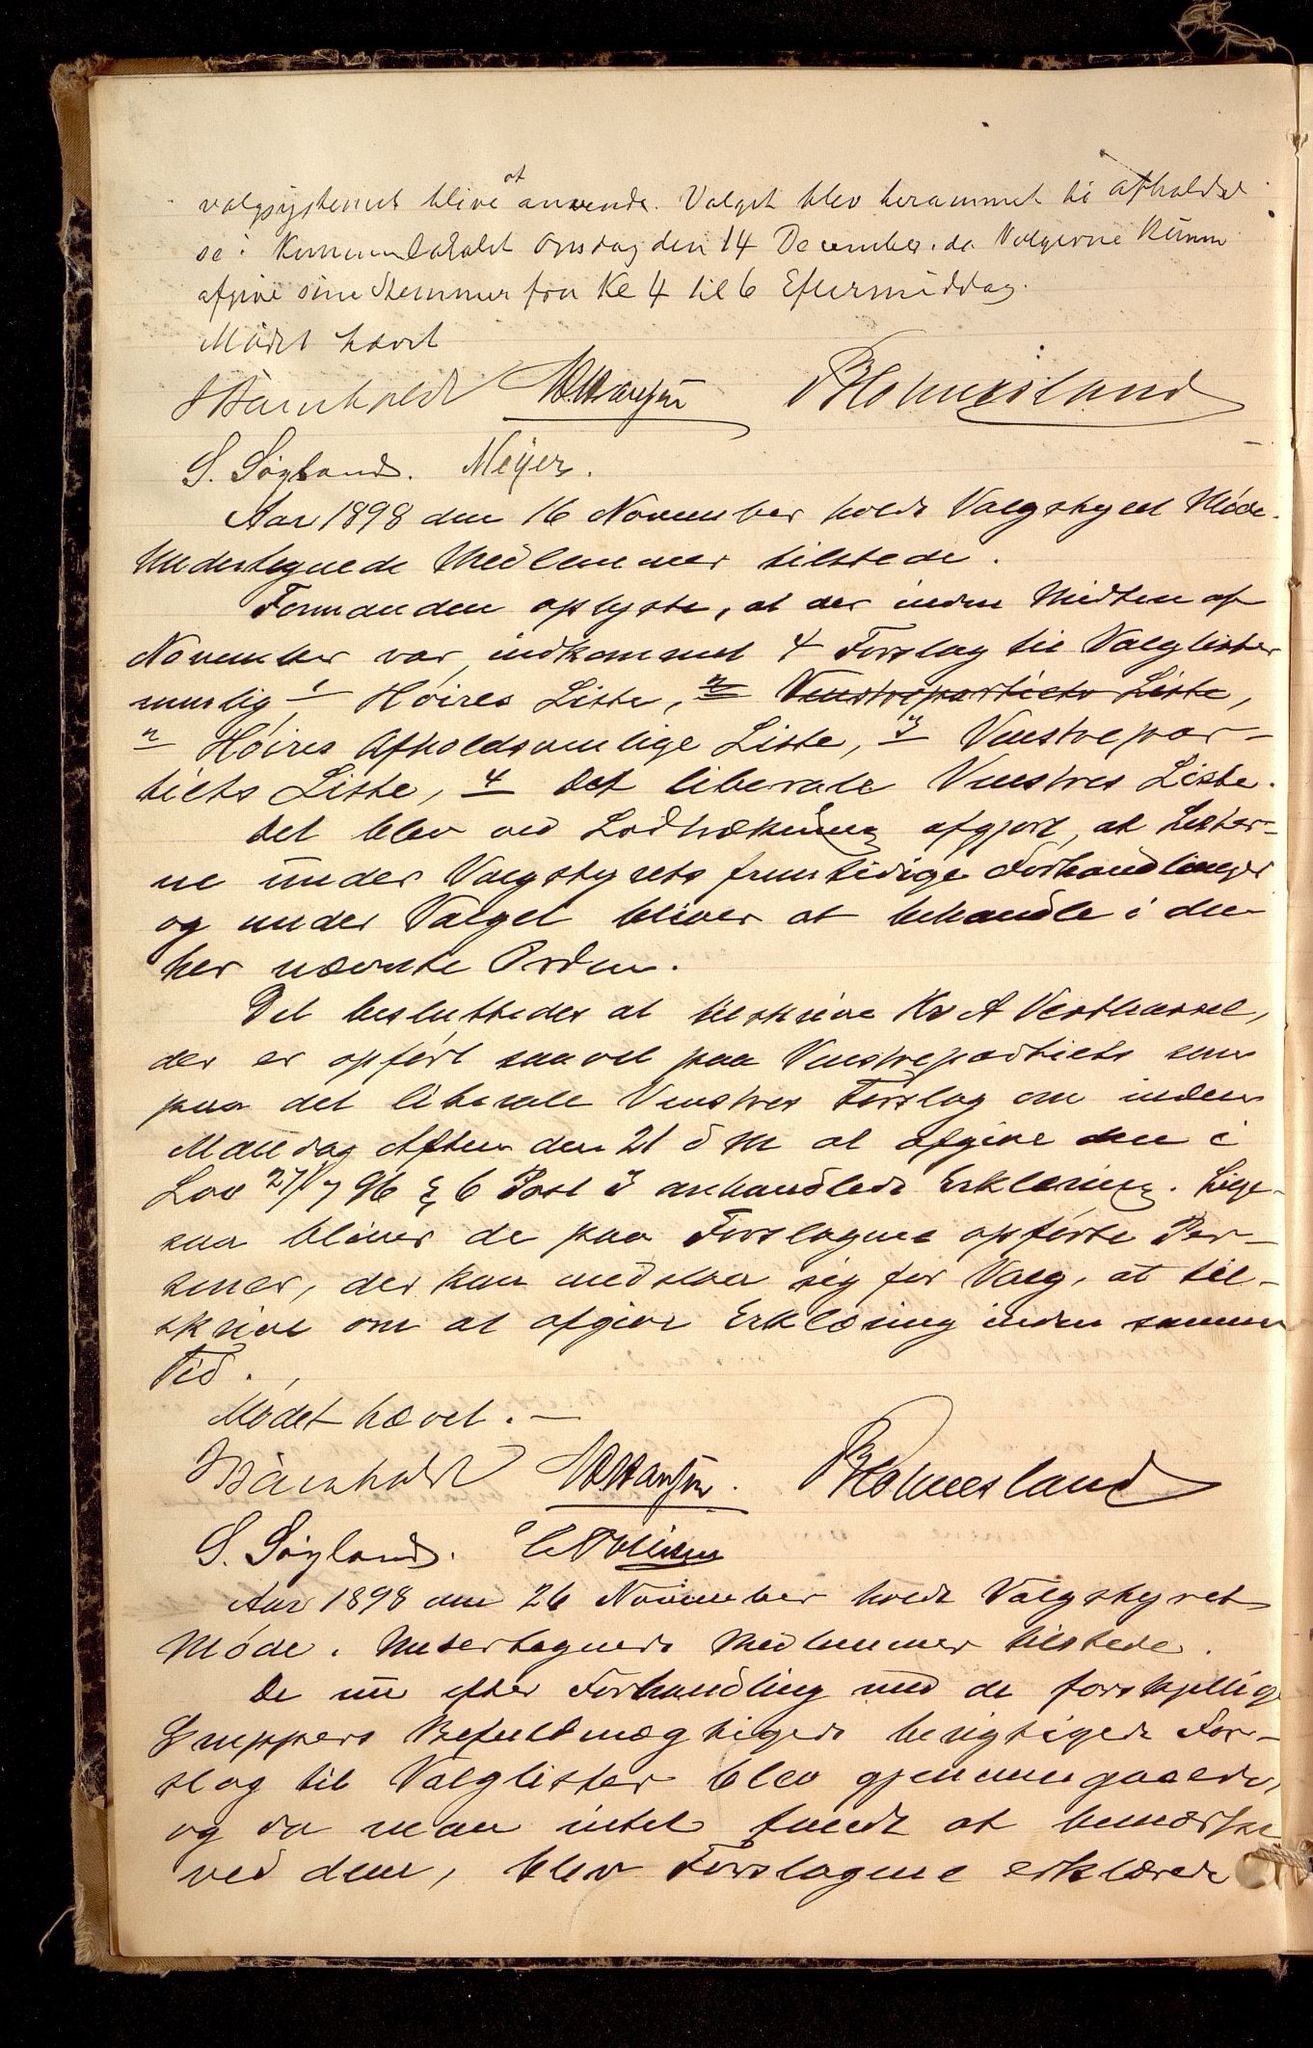 valgsystemet blive at anvende. Valget blev berammet til afholdel
se i Kommunelokalet Onsdag den 14 December. da Vælgerne kunne
afgive sine Stemmer fra Kl 4 til 6 Eftermiddag.
Mødet hævet
Barnholdt Holmesland
S. Søyland. Meyer.
Aar 1898 den 16 November holdt Valgstyret Møde.
Undertegnede Medlemmer tilstede.
Formanden oplyste, at der inden Midten af
November var indkommet 4 Forslag til Valglister
nemlig 1 Høires Liste, 2 Venstrepartiets Liste,
2 Høires Afholdsvenlige Liste, 3 Venstrepar-
tiets Liste, 4 Det liberale Venstres Liste.
Det blev ved Lodtrækning afgjort, at Lister-
ne under Valgstyrets fremtidige Forhandlinger
og under Valget bliver at behandle i den
her nævnte Orden.
Det besluttedes at tilskrive Kr A Vesthassel,
der er opført saavel paa Venstrepartiets som
paa det liberale Venstres Forslag om inden
Mandag Aften den 21 d M at afgive den i
Lov 27/7 96 § 6 Post 3 omhandlede Erklæring. Lige-
saa bliver de paa Forslagene opførte Per-
soner, der kan undslaa sig for Valg, at til-
skrive om at afgive Erklæring inden samme
Tid.
Mødet hævet. -
Barnholdt Holmesland
S. Søyland.
Aar 1898 den 26 November holdt Valgstyret
Møde. Undertegnede Medlemmer tilstede.
De nu efter Forhandling med de forskjellige
Gruppers Befuldmægtigede berigtigede For-
slag til Valglister blev gjennemgaaede,
og da man intet fandt at bemærke
ved dem, blev Forslagene erklærede